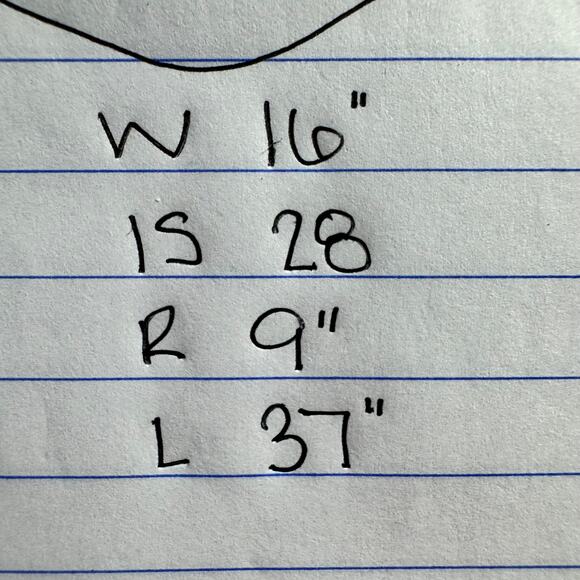 W 16"
IS 28
R 9"
L 37"